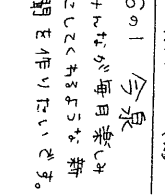 6の1 今泉
みんなが毎日楽しみ
にしてくれるような新
聞を作りたいです。